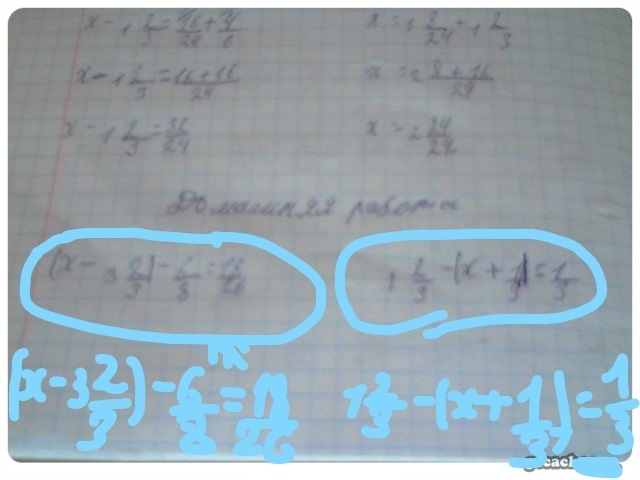 x - 1 2/3 = 16/24 + 4/6
x = 1 8/24 + 1 2/3
x - 1 2/3 = 16+16/24
x = 2 8+16/24
x - 1 2/3 = 32/24
x = 2 24/24
Домашняя работа
(x - 3 2/3) - 6/8 =
1 2/3 - (x + 1/3) = 1/3
(x - 3 2/3) - 6/8 =
1 2/3 - (x + 1/3) = 1/3